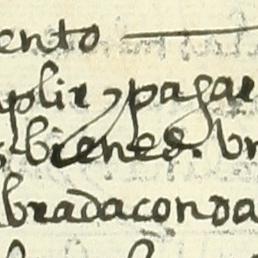 ento
plir y pagar
bienes. vn
bradaconda